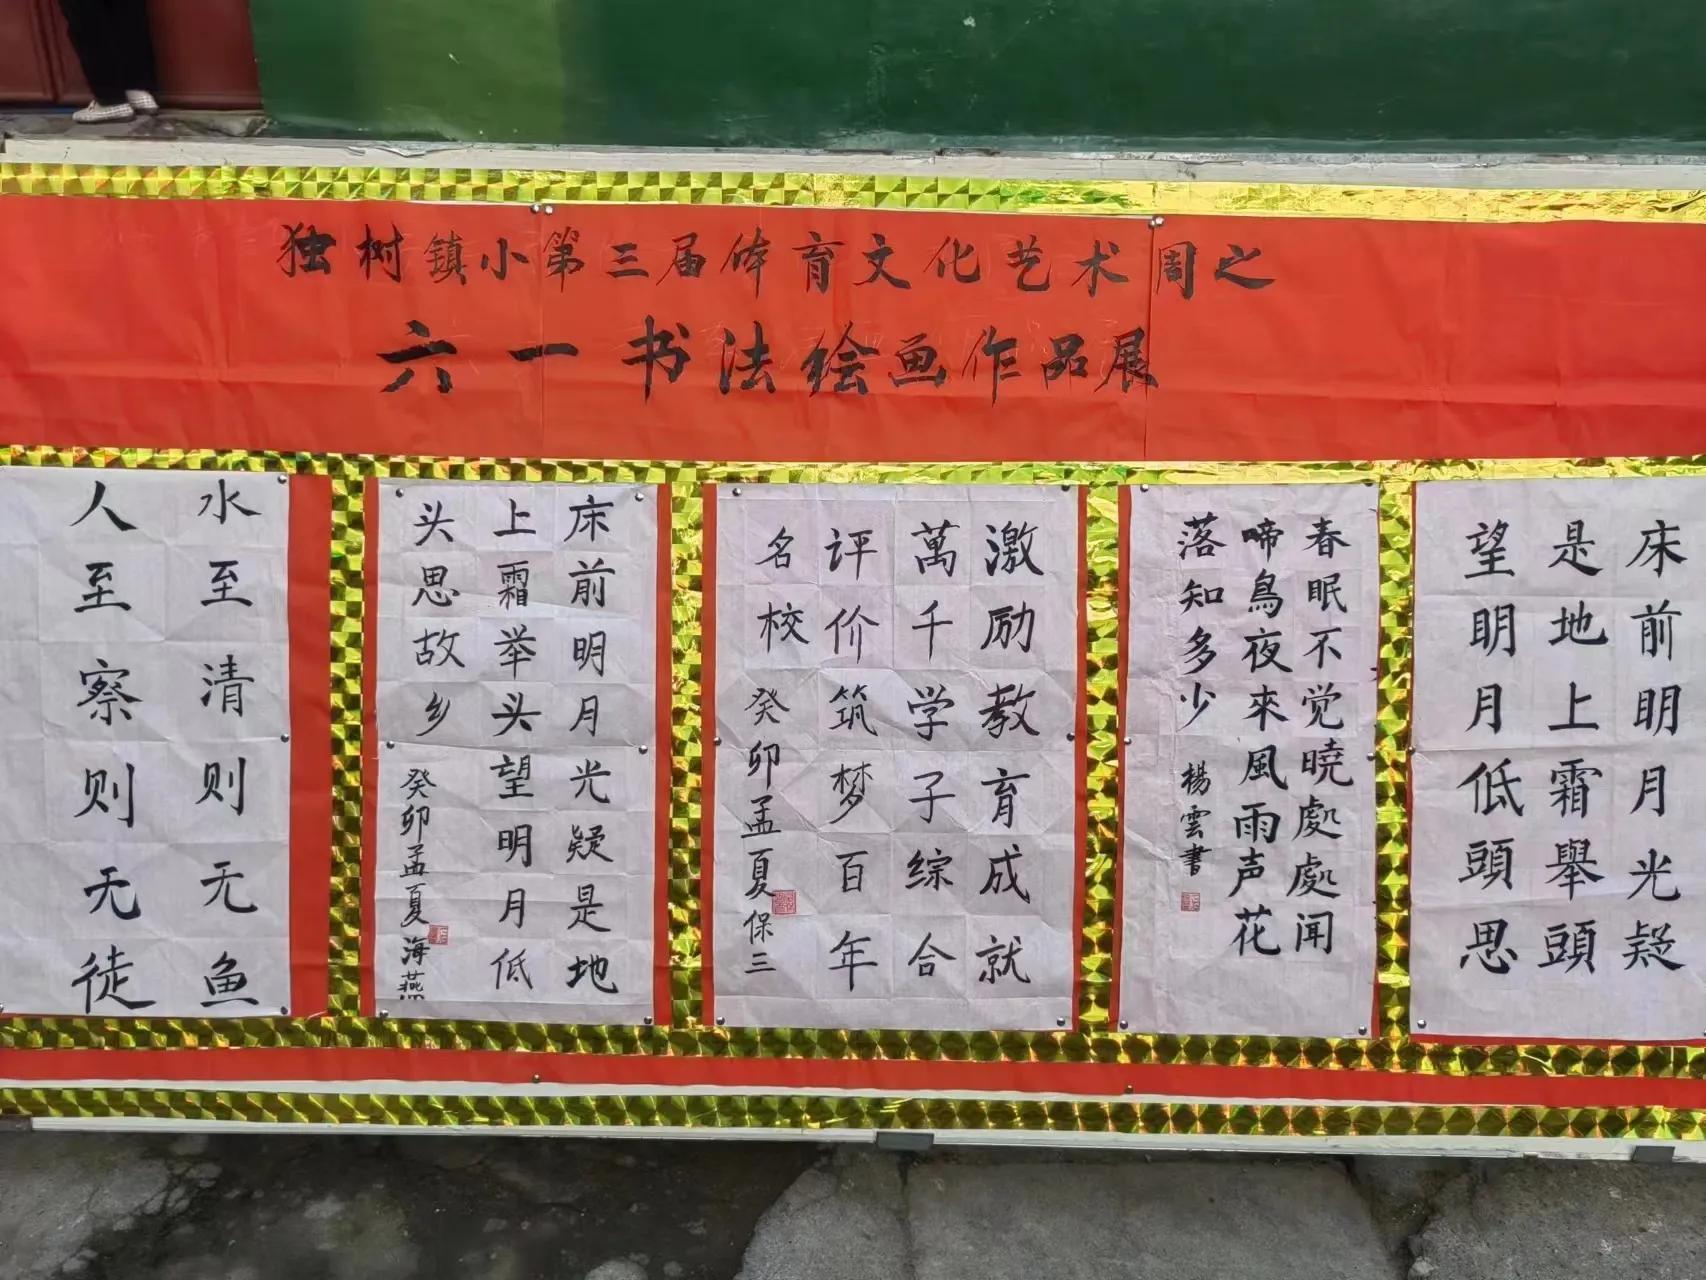 独树镇小第三届体育文化艺术周之
六一书法绘画作品展
水至清则无鱼
人至察则无徒
床前明月光疑是地
上霜举头望明月低
头思故乡
癸卯孟夏海燕
激励教育成就
萬千学子综合
评价筑梦百年
名校
癸卯孟夏保三
春眠不觉曉處處闻
啼鳥夜來風雨声花
落知多少
楊雲書
床前明月光疑
是地上霜舉頭
望明月低頭思